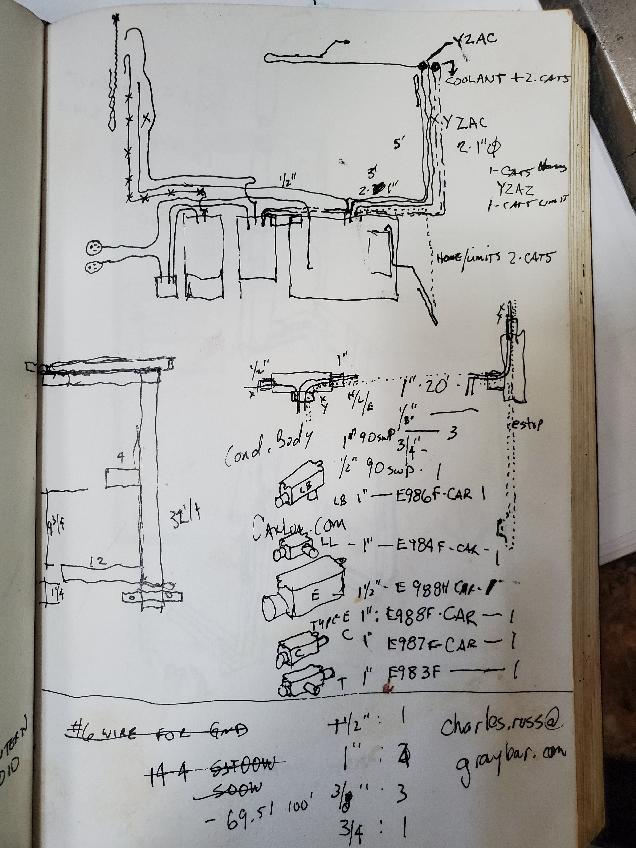 YZAC
COOLANT + 2. CAT5
YZAC
5'
2. 1"Ø
1- CAT5
YZAZ
1- CAT5 LIMIT
3'
1/2"
2. 1"
HOME/LIMITS 2. CAT5
1/2"
1"
1" 20'
estop
Cond. Body
1" 90 swp
3/4"
3
1/2" 90 swp. 1
LB
LB 1" — E986F-CAR 1
Carlon.com
LL - 1" — E984F-CAR - 1
E
1 1/2" - E988H CAR -
TYPE E 1" : E988F-CAR — 1
C
C 1" E987F-CAR — 1
T 1" E983F — 1
4
32 1/4
12
1 1/4
#6 WIRE FOR GND
14-4 SJTOOW
SOOW
- 69.51 100'
1/2" : 1
1" :
3/8" : 3
3/4 : 1
charles.russ@
graybar.com